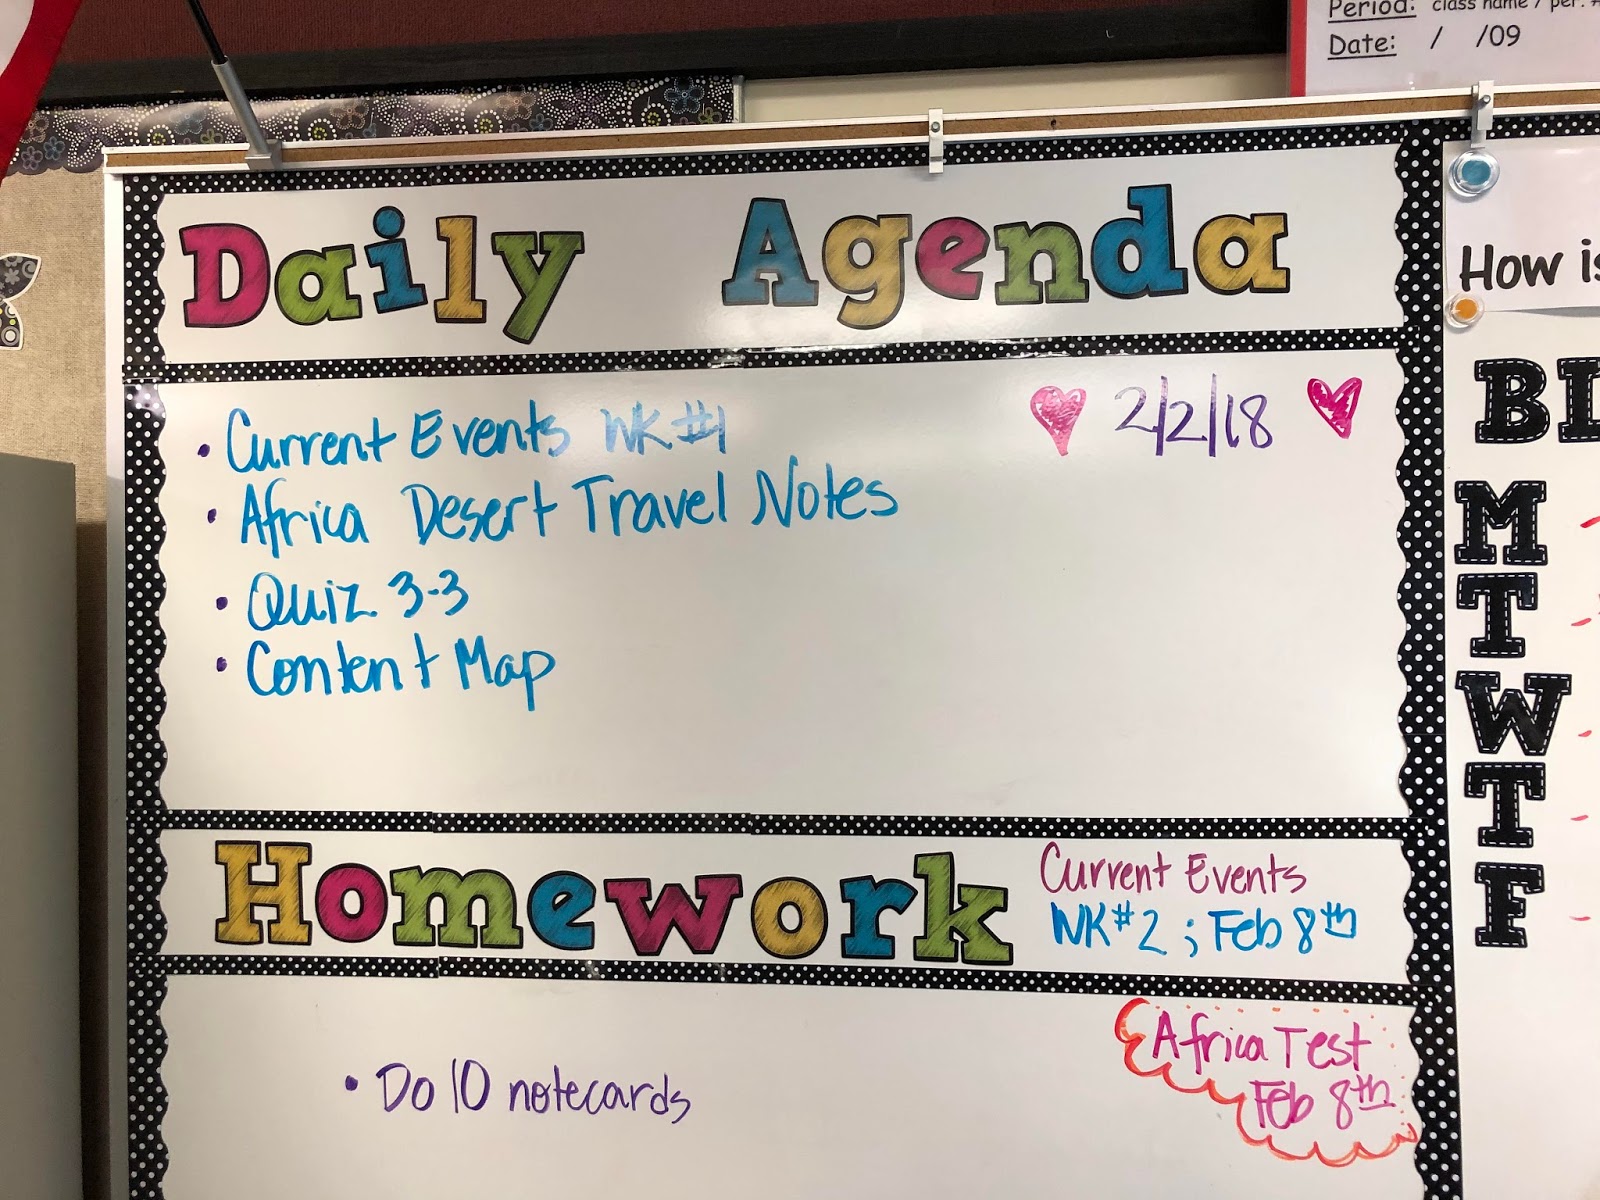 Period: class name / per. #
Date: / /09
Daily Agenda
2/2/18
• Current Events WK #1
• Africa Desert Travel Notes
• Quiz 3-3
• Content Map
Homework
Current Events
WK #2 ; Feb 8th
• Do 10 notecards
Africa Test
Feb 8th
How is
M
T
W
T
F